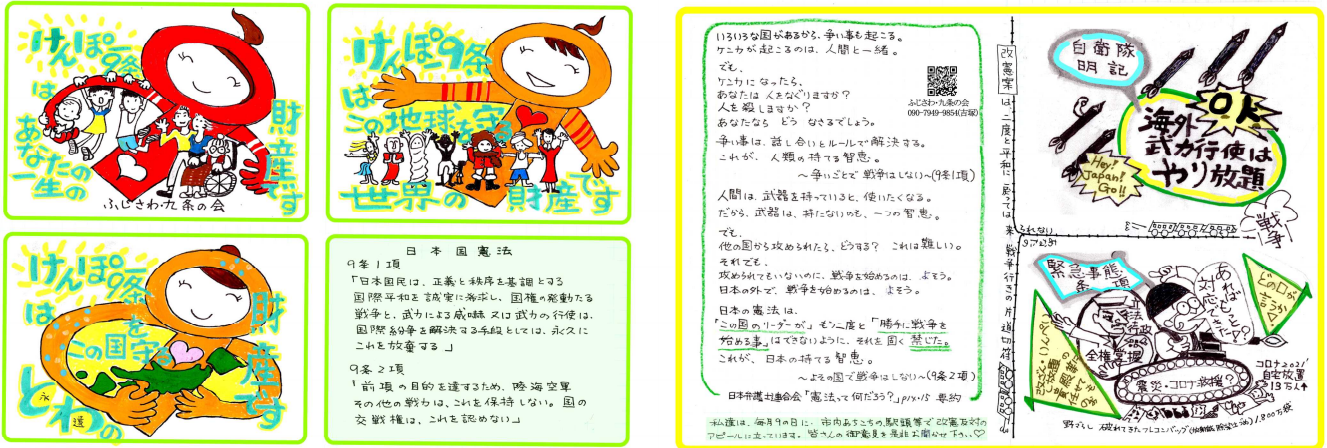 けんぽー9条
は
あなたの
一生の
財産です
ふじさわ・九条の会
けんぽー9条
は
この地球を守る
世界の財産です
けんぽー9条
は
この国を守る
とわの
永遠
財産です
日本国憲法
9条1項
「日本国民は、正義と秩序を基調とする
国際平和を誠実に希求し、国権の発動たる
戦争と、武力による威嚇又は武力の行使は、
国際紛争を解決する手段としては、永久に
これを放棄する」
9条2項
「前項の目的を達するため、陸海空軍
その他の戦力は、これを保持しない。国の
交戦権は、これを認めない」
いろいろな国があるから、争い事も起こる。
ケンカが起こるのは、人間と一緒。
でも、
ケンカになったら、
あなたは人をなぐりますか?
人を殺しますか?
あなたなら どう なさるでしょう。
ふじさわ・九条の会
090-7949-9854(吉塚)
争い事は、話し合いとルールで解決する。
これが、人類の持てる智恵。
～争いごとで戦争はしない～(9条1項)
人間は、武器を持っていると、使いたくなる。
だから、武器は、持たないのも、一つの智恵。
でも、
他の国から攻められたら、どうする? これは難しい。
それでも、
攻められてもいないのに、戦争を始めるのは、よそう。
日本の外で、戦争を始めるのは、よそう。
日本の憲法は、
「この国のリーダーが」もう二度と「勝手に戦争を
始める事」はできないように、それを固く禁じた。
これが、日本の持てる智恵。
～よその国で戦争はしない～(9条2項)
日本弁護士連合会「憲法って何だろう?」P12×15 要約
私達は、毎月9の日に、市内あちこちの駅頭等で改憲反対の
アピールに立っています。皆さんの御意見を是非お聞かせ下さい♡
改憲案は、二度と平和に戻っては来られない
戦争行きの片道切符
自衛隊
明記
O.K.
海外
武力行使は
やり放題
Hey!
Japan!
Go!!
戦争
緊急事態
条項
あれば
対応できた!
どの口が
言うか!
全権掌握
震災・コロナ救援?
コロナ2021
自宅放置
13万人↑
野ざらし 破れてきたフレコンバッグ